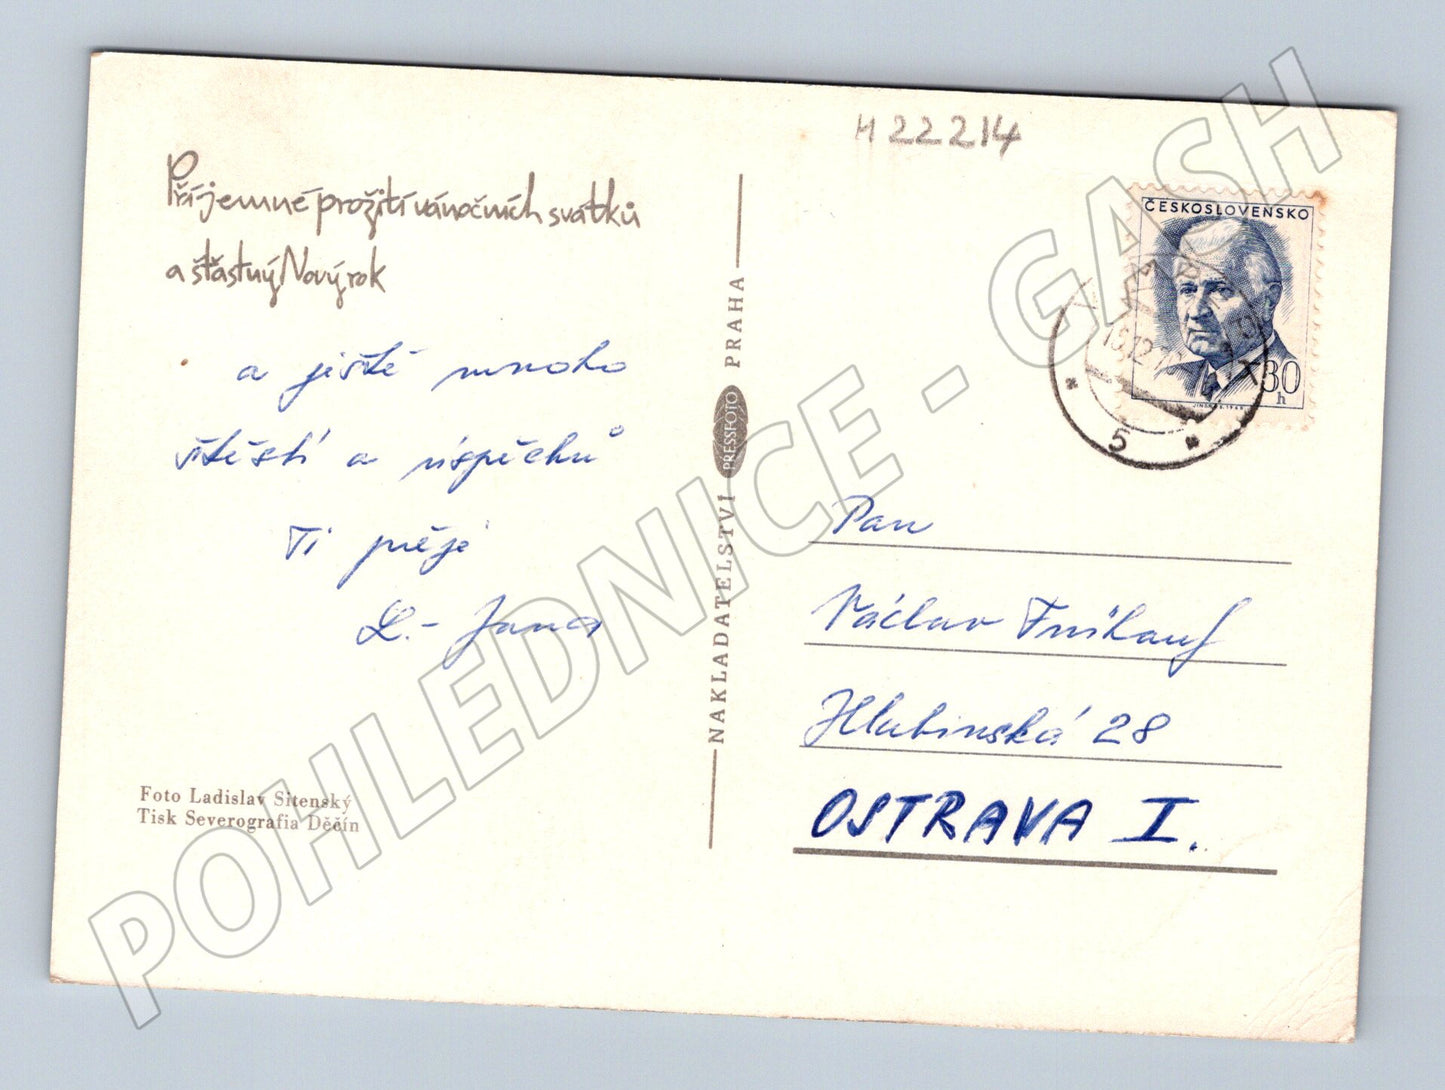 H 22214
Příjemné prožití vánočních svátků
a šťastný Nový rok
a ještě mnoho
štěstí a úspěchů
Ti přeje
L.- Jana
Foto Ladislav Sitenský
Tisk Severografia Děčín
NAKLADATELSTVÍ PRESSFOTO PRAHA
ČESKOSLOVENSKO
30
h
5
Pan
Václav
Hlubinská 28
OSTRAVA I.
POHLEDNICE - GASH